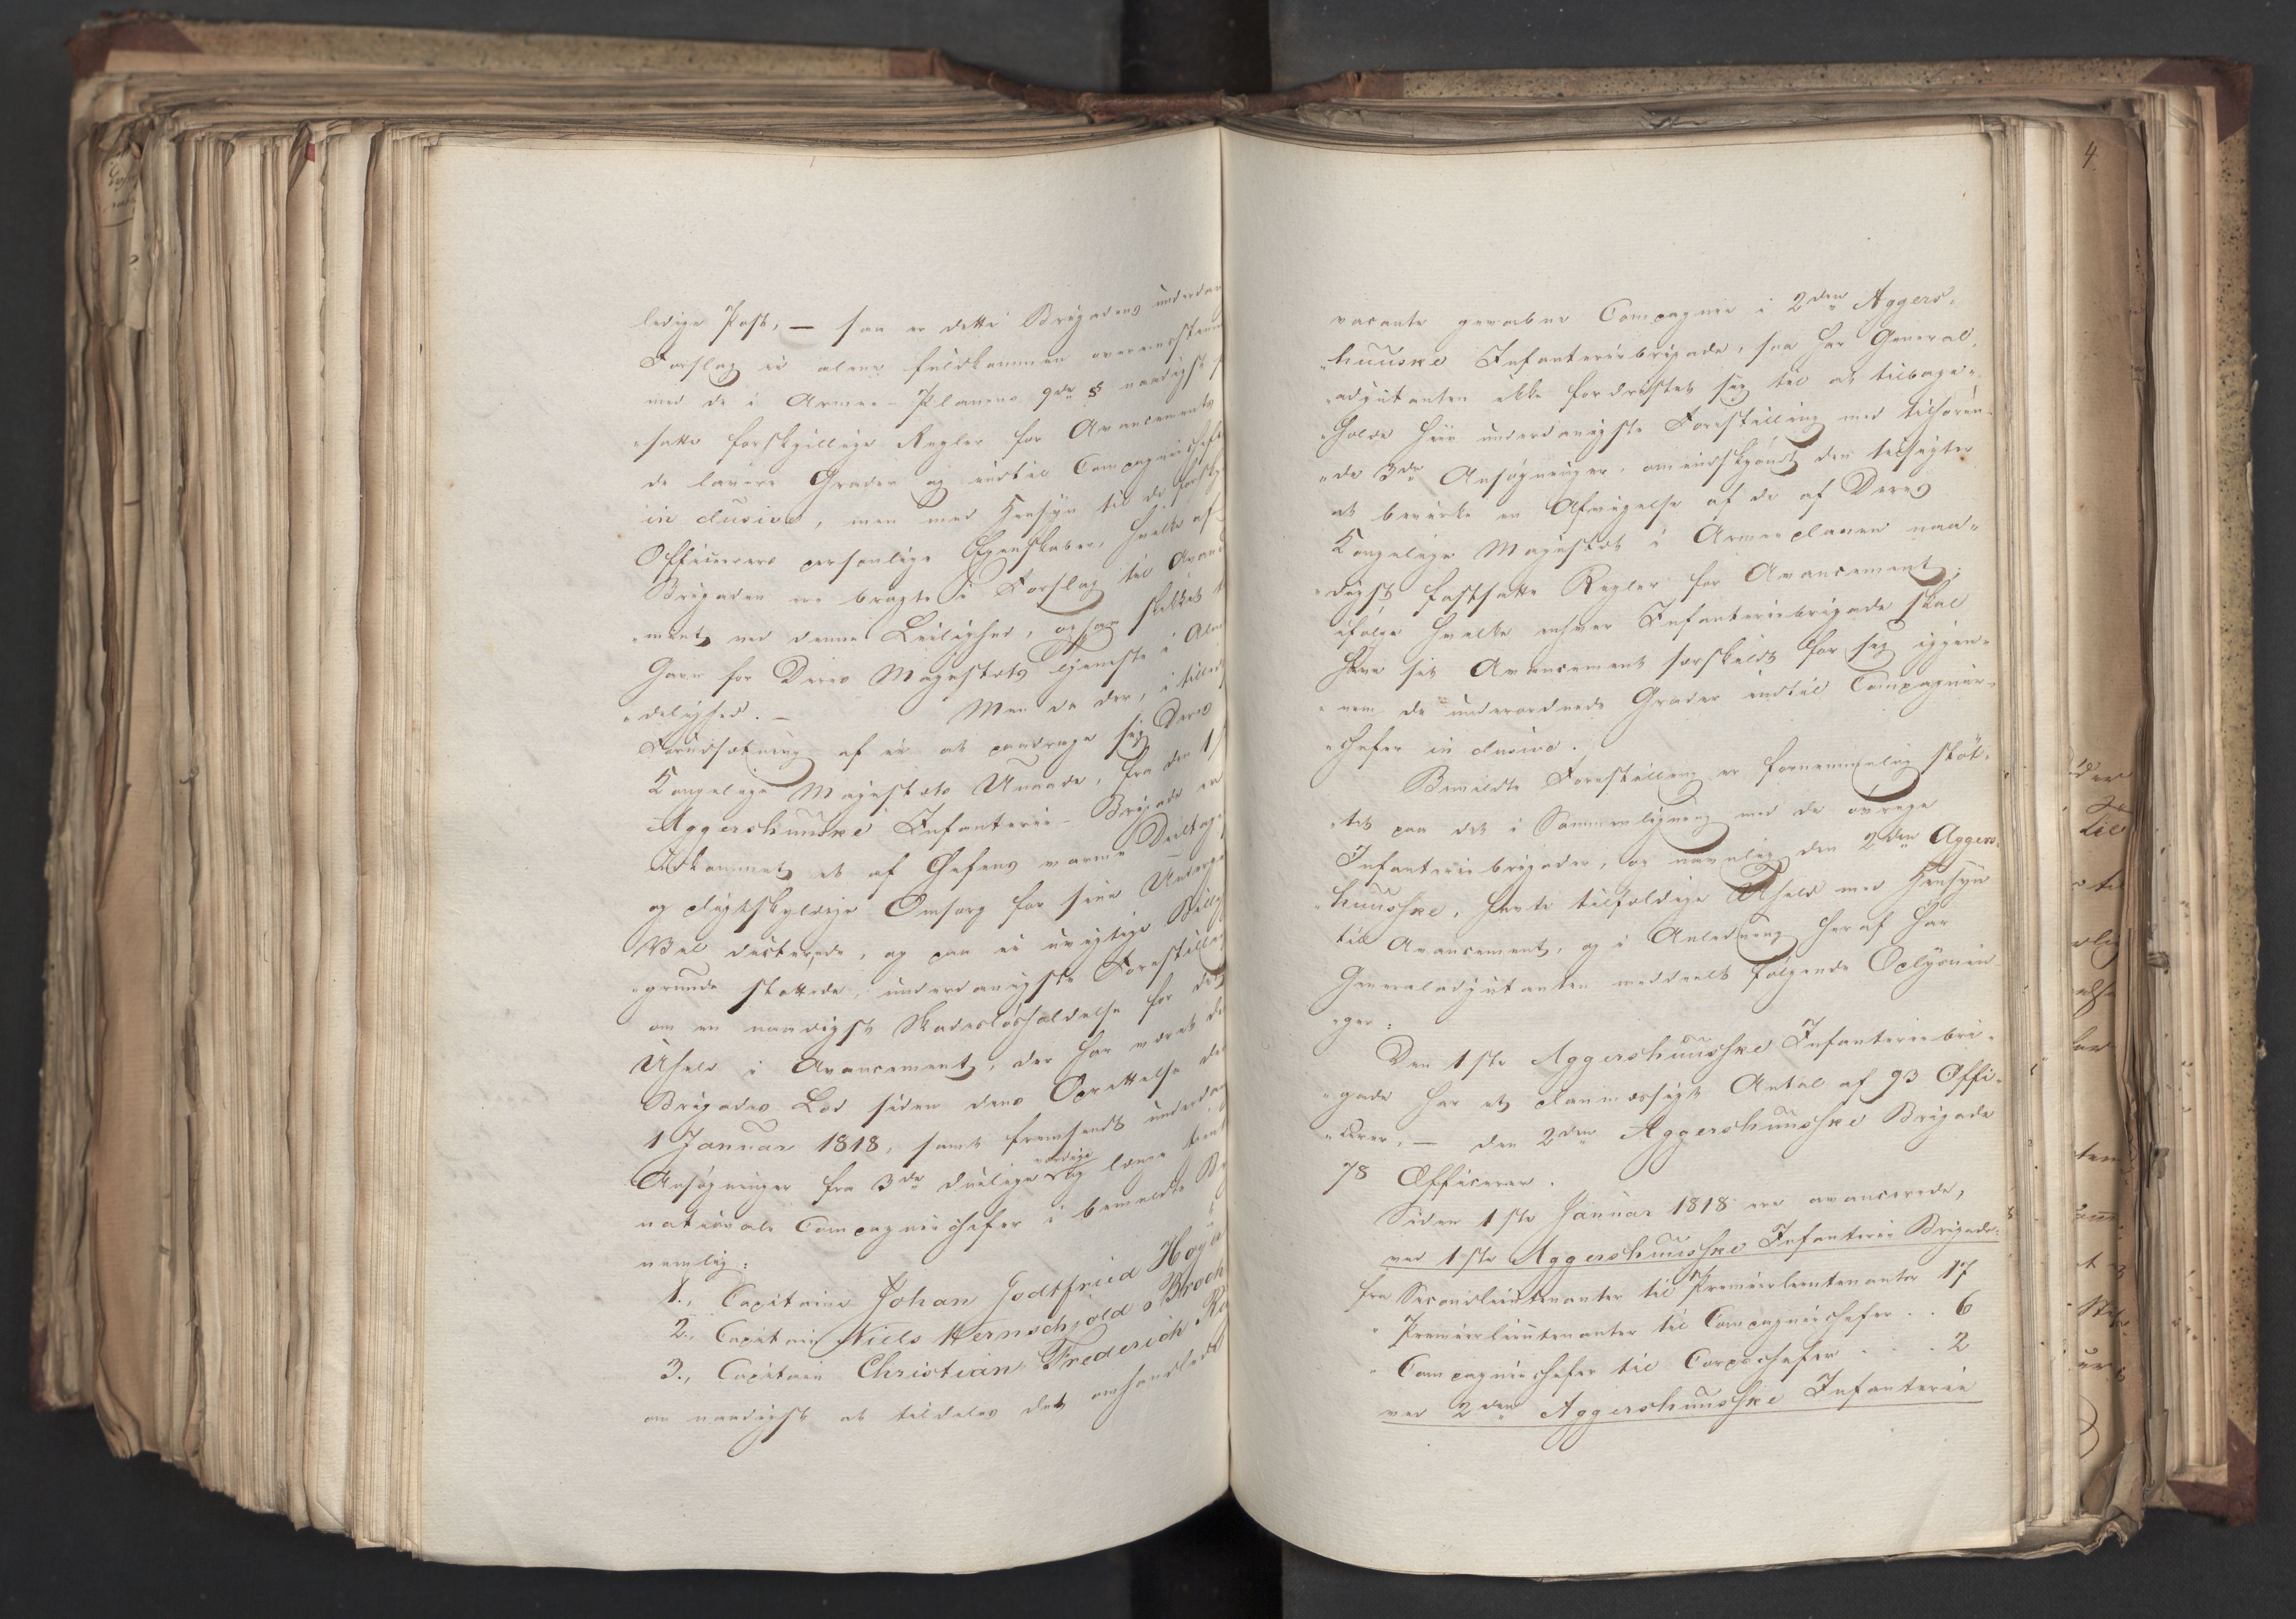 ledige Post, — saa er dette Brigadens underdan
Forslag ei alene fuldkommen overeensstem
med de i Armee-Planens 9de § naadigst f
"satte forskjellige Regler for Avancements
de lavere Grader og indtil Compagniechefe
inclusive, men med Hensyn til de forskj
Officierers personlige Egenskaber, hvilke af
Brigaden ere bragte i Forslag til Avanc
"ment ved denne Leilighed, ogsaa skikket t
Gavn for Deres Majestæts Tjeneste i Alm
"delighed. — Men da der, i tillid
Forudsætning af ei at paadrage sig Deres
Kongelige Majestæts Unaade, fra den 1s
Aggershuuske Infanterie-Brigade er
indkommet et af Chefens varme Deeltage
og pligtskyldige Omsorg for sine Underg
Vel dicterede, og paa ei uvigtige Billig
"grunde støttede, underdanigste Forestilling
om en naadigst Skadesløsholdelse for det
Uheld i Avancement, der har været de
Brigades Lod siden dens Oprettelse de
1 Januar 1818, samt fremsendt underda
værdige
Ansøgninger fra 3de duelige og længe tient
nationale Compagniechefer i bemeldte Br
nemlig:
1., Capitaine Johan Godtfried Høy
2., Capitain Niels Wernschjold Broch
3., Capitain Christian Frederich
om naadigst at tildeles det omhandlede
4.
vacante gevorbne Compagnie i 2den Aggers"
"huuske Infanteriebrigade, saa har General"
"adjutanten ikke fordristet sig til at tilbage"
"holde hiin underdanigste Forestilling med tilhøren"
"de 3de Ansøgninger, omendskjøndt den tilsigter
at bevirke en Afvigelse af de af Deres
Kongelige Majestæt i Armeeplanen naa"
"digst fastsatte Regler for Avancement;
ifølge hvilke enhver Infanteriebrigade skal
have sit Avancement særskildt for sig igjen"
"nem de underordnede Grader indtil Compagnie"
"chefer inclusive.
Bemeldte Forestilling er fornemmelig støt"
"tet paa det i Sammenligning med de øvrige
Infanteriebrigader, og navnlig den 2den Aggers"
"huuske, havte tilfældige Uheld med Hensyn
til Avancement, og i Anledning heraf har
Generaladjutanten meddeelt følgende Oplysnin"
"ger:
Den 1ste Aggershuuske Infanteriebri"
"gade har et planmæssigt Antal af 93 Offi"
"cerer, — den 2den Aggershuuske Brigade
78 Officerer.
Siden 1ste Januar 1818 ere avancerede,
ved 1ste Aggershuuske Infanterie Brigade:
fra Secondlieutenanter til Premierlieutenanter 17
" Premierlieutenanter til Compagniechefer . . 6
" Compagniechefer til Corpschefer . . . 2
ved 2den Aggershuuske Infanterie